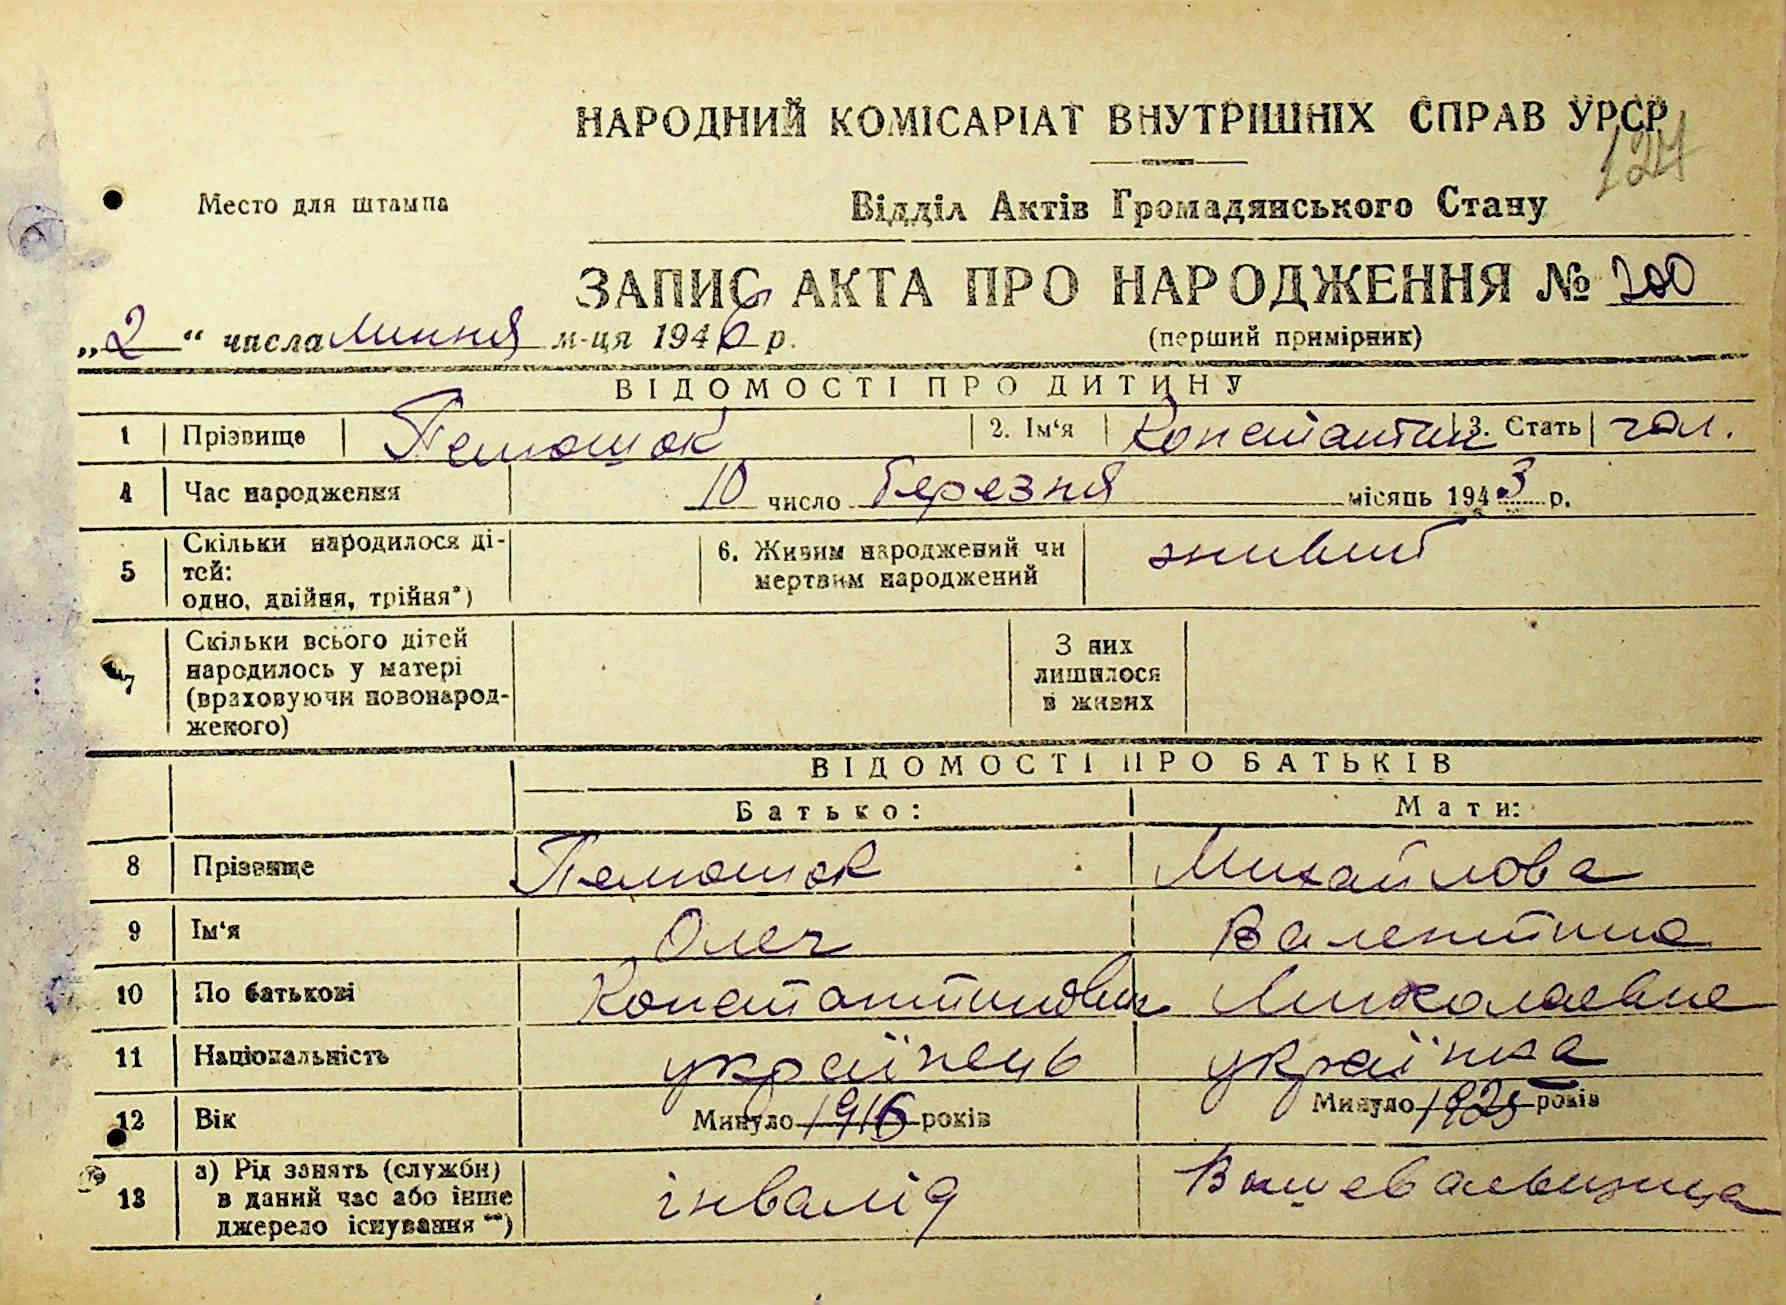 НАРОДНИЙ КОМІСАРІАТ ВНУТРІШНІХ СПРАВ УРСР
124
Место для штампа
Відділ Актів Громадянського Стану
ЗАПИС АКТА ПРО НАРОДЖЕННЯ № 200
„2“ числа липня м-ця 1946 р. (перший примірник)
ВІДОМОСТІ ПРО ДИТИНУ
1 Прізвище 2. Ім‘я Константин 3. Стать чол.
4 Час народження 10 число березня місяць 1943 р.
5 Скільки народилося ді-
тей:
одно, двійня, трійня*)
6. Живим народжений чи
мертвим народжений
живим
7 Скільки всього дітей
народилось у матері
(враховуючи новонарод-
женого)
З них
лишилося
в живих
ВІДОМОСТІ ПРО БАТЬКІВ
Батько: Мати:
8 Прізвище Михайлова
9 Ім‘я Олег Валентина
10 По батькові Константинович Миколаевна
11 Національність українець українка
12 Вік Минуло 1916 років Минуло 1925 років
13 а) Рід занять (служби)
в даний час або інше
джерело існування **)
інвалід Вишевальщица